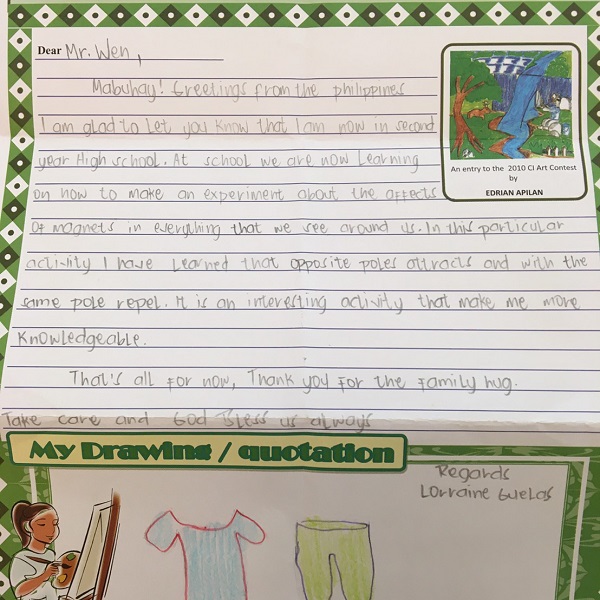 Dear Mr. Wen,
Mabuhay! Greetings from the philippines
I am glad to let you know that I am now in second
year High school. At school we are now Learning
on how to make an experiment about the affects
of magnets in everything that we see around us. In this particular
activity I have Learned that opposite poles attracts and with the
same pole repel. It is an interesting activity that make me more
Knowledgeable.
That's all for now, Thank you for the family hug.
Take care and God Bless us always
An entry to the 2010 CI Art Contest
by
EDRIAN APILAN
My Drawing / quotation
Regards
Lorraine Guelas